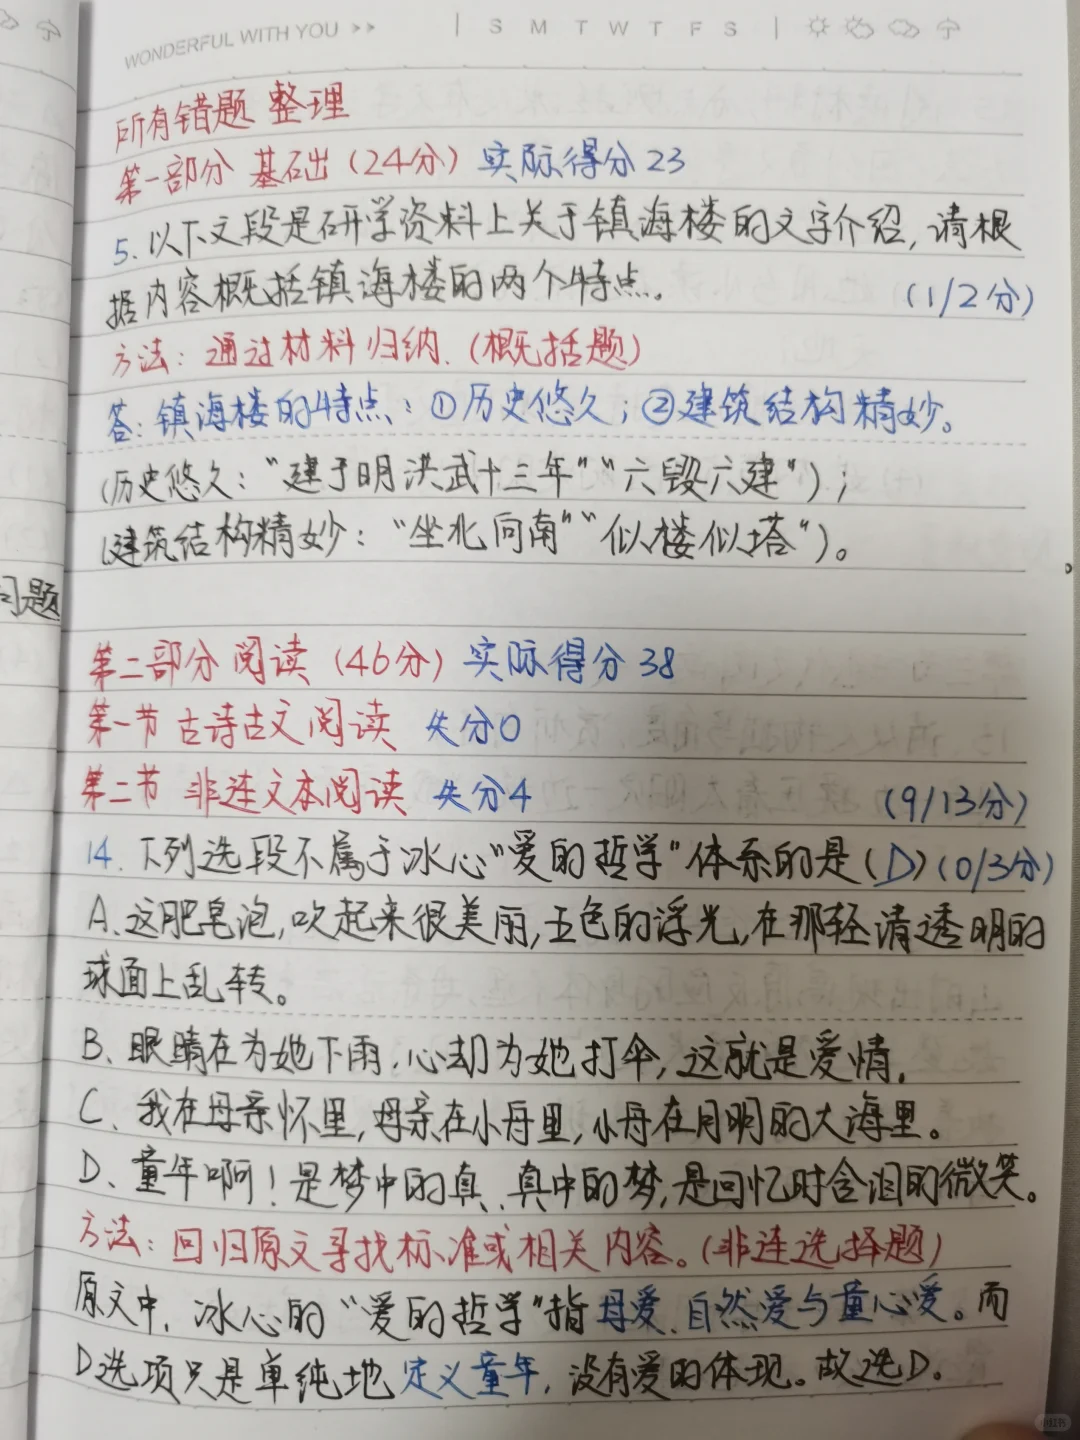 WONDERFUL WITH YOU >>
| S M T W T F S |
所有错题 整理
第一部分 基础（24分） 实际得分 23
5. 以下文段是研学资料上关于镇海楼的文字介绍，请根
据内容概括镇海楼的两个特点。 （1/2分）
方法：通过材料归纳.（概括题）
答：镇海楼的特点：①历史悠久；②建筑结构精妙。
（历史悠久：“建于明洪武十三年”“六毁六建”）；
（建筑结构精妙：“坐北向南”“似楼似塔”）。
习题
第二部分 阅读（46分） 实际得分 38
第一节 古诗古文阅读 失分0
第二节 非连文本阅读 失分4 （9/13分）
14. 下列选段不属于冰心“爱的哲学”体系的是（D）（0/3分）
A、这肥皂泡，吹起来很美丽，五色的浮光，在那轻清透明的
球面上乱转。
B、眼睛在为她下雨，心却为她打伞，这就是爱情，
C、我在母亲怀里，母亲在小舟里，小舟在月明的大海里。
D、童年啊！是梦中的真、真中的梦，是回忆时含泪的微笑。
方法：回归原文寻找标准或相关内容。（非连选择题）
原文中，冰心的“爱的哲学”指母爱、自然爱与童心爱。而
D选项只是单纯地定义童年，没有爱的体现。故选D.
小红书